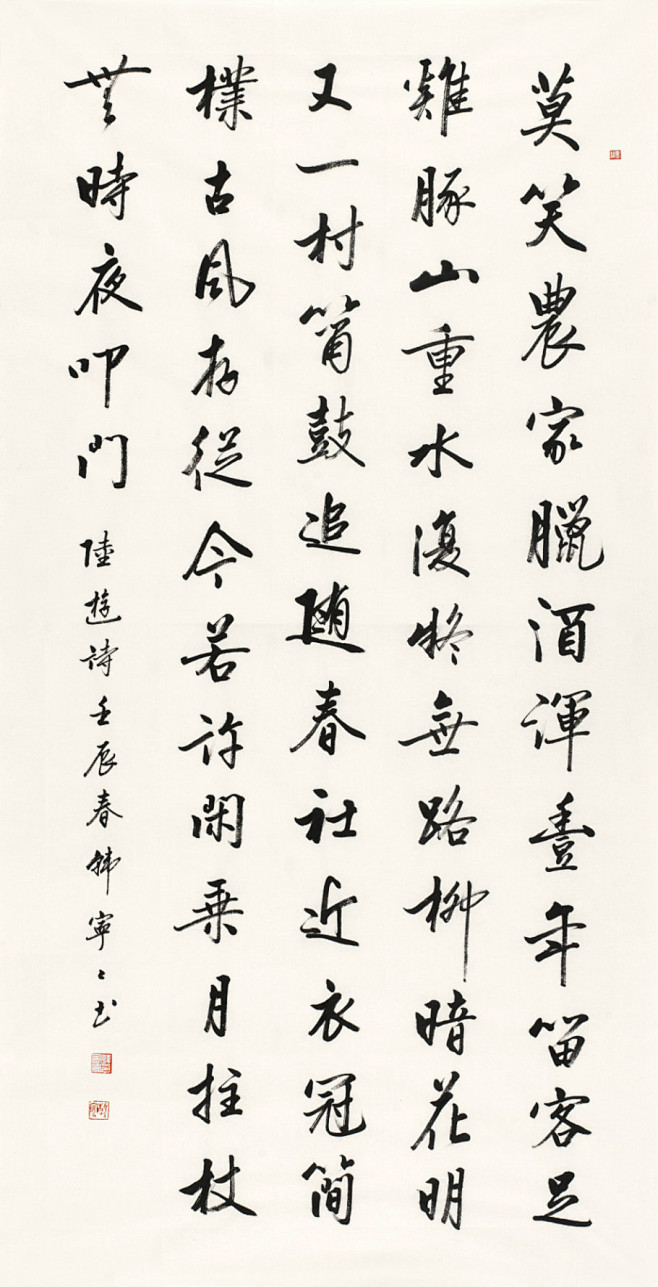 莫笑農家臘酒渾豊年留客足
雞豚山重水復疑無路柳暗花明
又一村簫鼓追随春社近衣冠簡
樸古風存從今若許閑乗月拄杖
無時夜叩門
陸遊詩壬辰春韓寧〻书